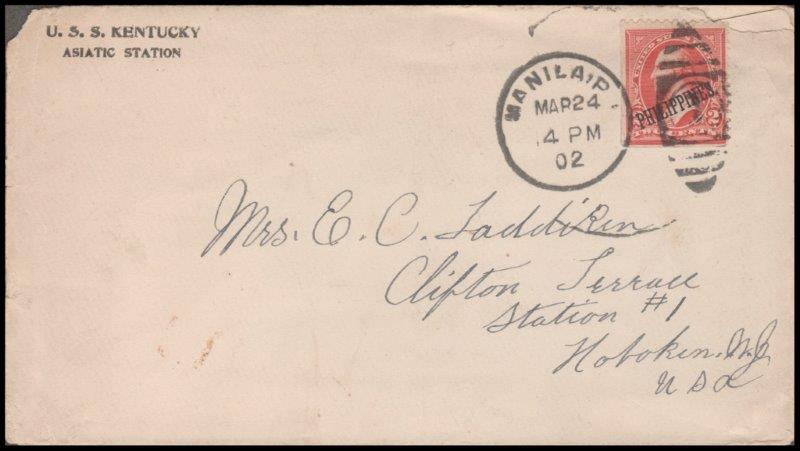 U. S. S. KENTUCKY
ASIATIC STATION
MANILA, P.
MAR 24
4 PM
02
UNITED
PHILIPPINES
TWO CENTS
2
Mrs. E. C. Taddiken
Clifton Terrace
Station #1
Hoboken. N.J.
USA